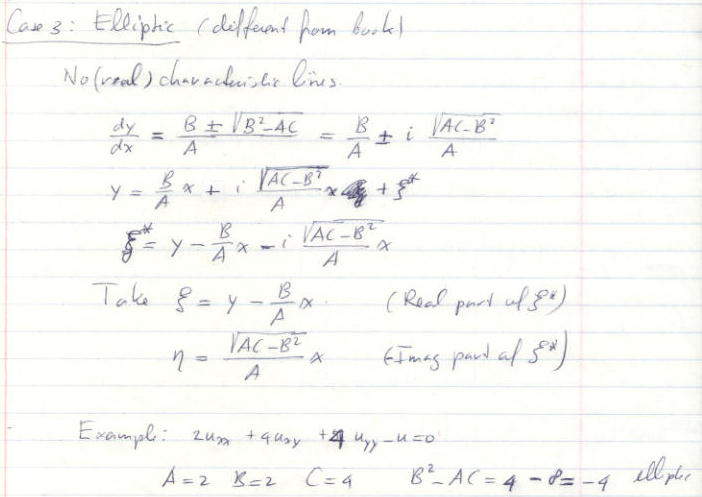 Case 3: Elliptic (different from book)
No (real) characteristic lines.
dy/dx = (B ± √(B²-AC))/A = B/A ± i √(AC-B²)/A
y = B/A x + i √(AC-B²)/A x + ξ*
ξ* = y - B/A x - i √(AC-B²)/A x
Take ξ = y - B/A x. (Real part of ξ*)
η = √(AC-B²)/A x (-Imag part of ξ*)
Example: 2u_xx + 4u_xy + 4 u_yy - u = 0
A=2 B=2 C=4 B²-AC = 4 - 8 = -4 elliptic